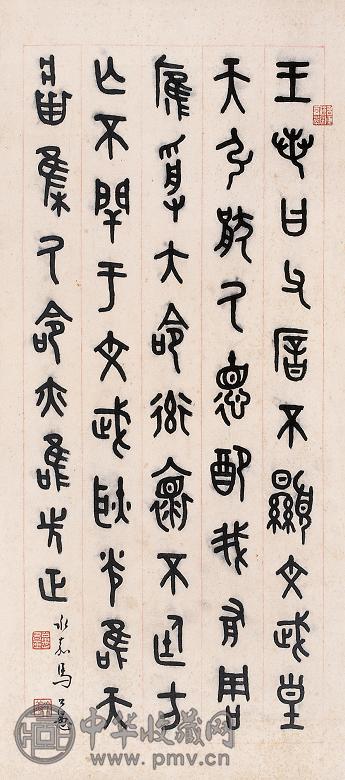 王若曰父厝不顯文武皇
天引猒氒德配我有周
膺受大命率褱不廷方
亡不閈于文武耿光唯天
集氒命亦唯先正
永嘉馬公愚
中华收藏网
www.pmv.cn